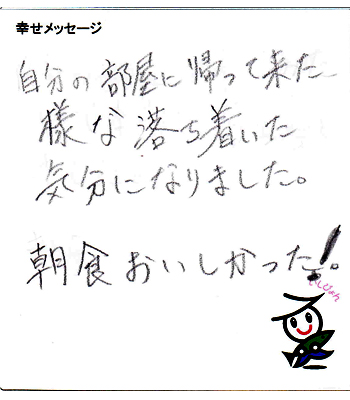 幸せメッセージ
自分の部屋に帰って来た
様な落ち着いた
気分になりました。
朝食おいしかった!。